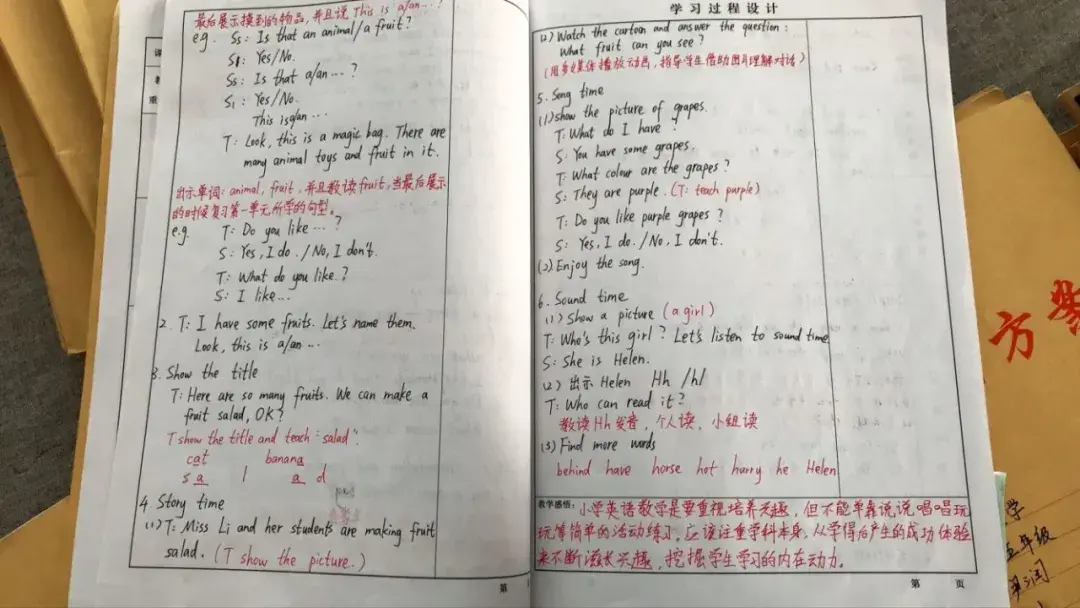 最后展示摸到的物品,并且说 This is a/an…?
e.g. Ss: Is that an animal/a fruit?
S1: Yes/No.
Ss: Is that a/an…?
S1: Yes/No.
This is a/an…
T: Look, this is a magic bag. There are
many animal toys and fruit in it.
出示单词: animal, fruit, 并且教读fruit,当最后展示
的时候复习第一单元所学的句型。
e.g. T: Do you like…?
S: Yes, I do./No, I don't.
T: What do you like?
S: I like…
2. T: I have some fruits. Let's name them.
Look, this is a/an…
3. Show the title
T: Here are so many fruits. We can make a
fruit salad, OK?
T show the title and teach "salad".
cat banana
s a l a d
4 Story time
(1) T: Miss Li and her students are making fruit
salad. (T show the picture.)
第
学习过程设计
(2) Watch the cartoon and answer the question:
What fruit can you see?
(用多媒体播放动画,指导学生借助图片理解对话)
5. Song time
(1) Show the picture of grapes.
T: What do I have?
S: You have some grapes.
T: What colour are the grapes?
S: They are purple. (T: teach purple)
T: Do you like purple grapes?
S: Yes, I do./No, I don't.
(2) Enjoy the song.
6. Sound time
(1) Show a picture (a girl)
T: Who's this girl? Let's listen to sound time
S: She is Helen.
(2) 出示 Helen Hh /h/
T: Who can read it?
教读Hh发音,个人读,小组读
(3) Find more words
behind have horse hot hurry he Helen
教学感悟:小学英语教学是要重视培养兴趣,但不能单靠说说唱唱玩
玩等简单的活动练习,应该注重学科本身,从学得后产生的成功体验
来不断滋长兴趣,挖掘学生学习的内在动力。
第 页
方案
学
五年级